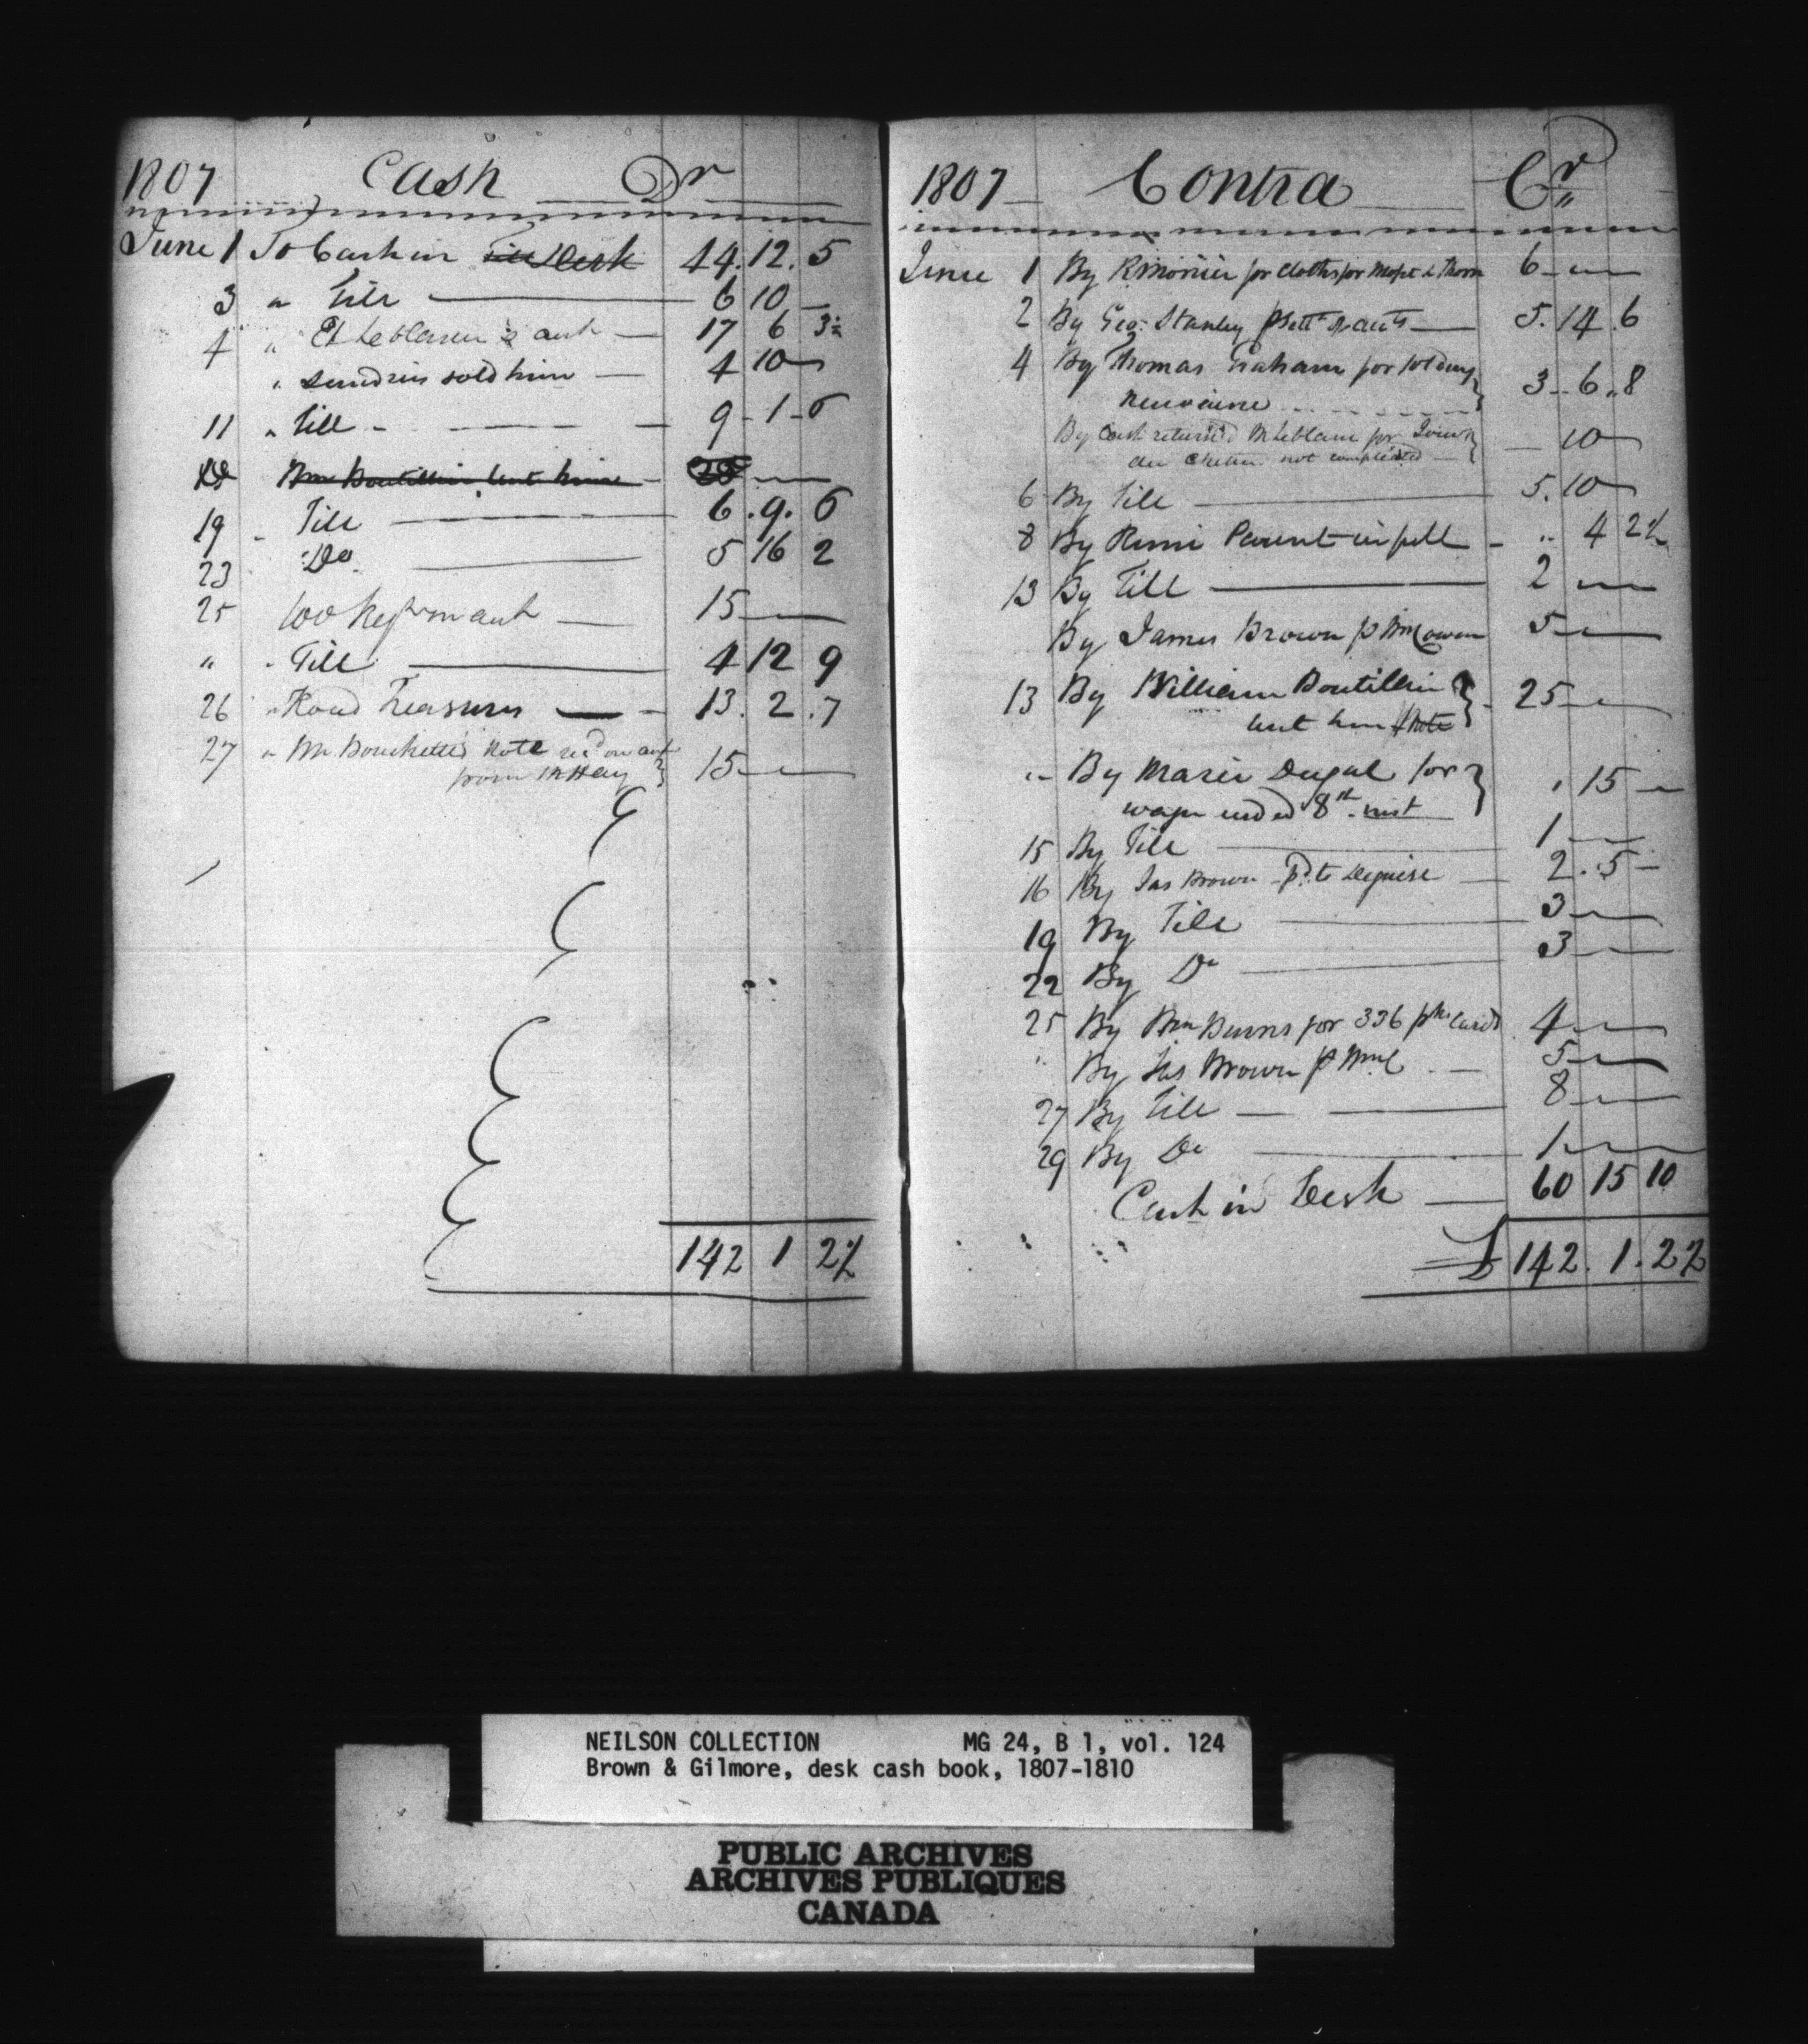 1807 Cash Dr
June 1 To Cash in Till Desk 44.12.5
3 " Till 6 10 -
4 " Et Leblanc's acct 17 6 3½
" Sundries sold him 4 10 -
11 " Till 9-1-6
Wm Boutillier lent him 25
19 " Till 6.9.6
23 Do 5 16 2
25 on acct 15
" " Till 4 12 9
26 " Road Treasurer 13.2.7
27 " Mr Bouchette's Note recd on acct
from Mr Hay 15
142 1 2½
1807 Contra Cr
June 1 By for Cloths for 6
2 By Geo: Stanley p Settt of accts 5.14.6
4 By Thomas Graham for folding
Neuvaine 3..6..8
By Cash returned M Leblanc for
not compleated 10
6 By Till 5.10
8 By Remi Parent in full " 4 2½
13 By Till 2
By James Brown p Wm Cowan 5
13 By William Boutillier
lent him p Note 25
" By Marie Dugal for
wages ended 8th inst " 15
15 By Till 1
16 By Jas Brown pd to 2.5 -
19 By Till 3
22 By Do 3
25 By Wm Burns for 336 pks Cards 4
" By Jas Brown p WmC 5
27 By Till 8
29 By Do 1
Cash in Desk 60 15 10
£ 142.1.2½
NEILSON COLLECTION MG 24, B 1, vol. 124
Brown & Gilmore, desk cash book, 1807-1810
PUBLIC ARCHIVES
ARCHIVES PUBLIQUES
CANADA